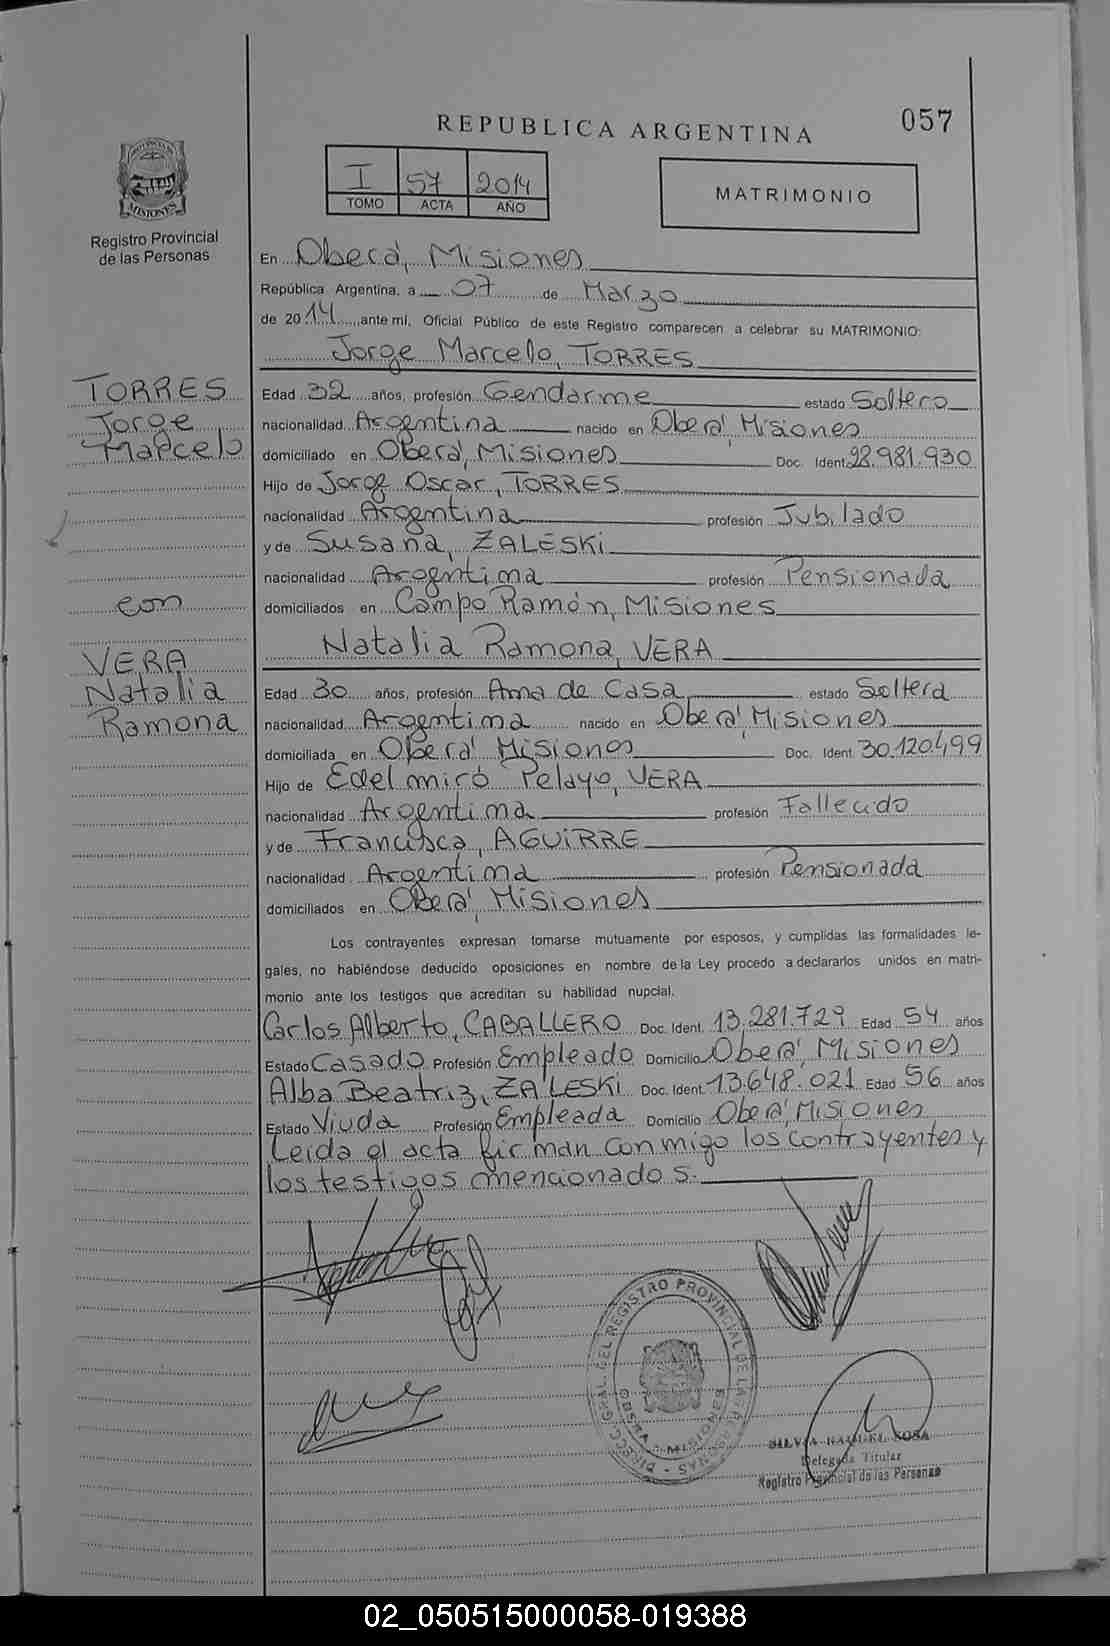 REPUBLICA ARGENTINA
057
I 57 2014
TOMO ACTA AÑO
MATRIMONIO
PROVINCIA DE
MISIONES
Registro Provincial
de las Personas
En Oberá, Misiones
República Argentina, a 07 de Marzo
de 2014, ante mí, Oficial Público de este Registro comparecen a celebrar su MATRIMONIO:
Jorge Marcelo, TORRES
TORRES
Jorge
Marcelo
Edad 32 años, profesión Gendarme estado Soltero
nacionalidad Argentina nacido en Oberá, Misiones
domiciliado en Oberá, Misiones Doc. Ident. 28.981.930
Hijo de Jorge Oscar, TORRES
nacionalidad Argentina profesión Jubilado
y de Susana, ZALESKI
nacionalidad Argentina profesión Pensionada
domiciliados en Campo Ramón, Misiones
con
Natalia Ramona, VERA
VERA
Natalia
Ramona
Edad 30 años, profesión Ama de Casa estado Soltera
nacionalidad Argentina nacido en Oberá, Misiones
domiciliada en Oberá, Misiones Doc. Ident. 30.120.499
Hijo de Edelmiró Pelayo, VERA
nacionalidad Argentina profesión Fallecido
y de Francisca, AGUIRRE
nacionalidad Argentina profesión Pensionada
domiciliados en Oberá, Misiones
Los contrayentes expresan tomarse mutuamente por esposos, y cumplidas las formalidades le-
gales, no habiéndose deducido oposiciones en nombre de la Ley procedo a declararlos unidos en matri-
monio ante los testigos que acreditan su habilidad nupcial.
Carlos Alberto, CABALLERO Doc. Ident. 13.281.729 Edad 54 años
Estado Casado Profesión Empleado Domicilio Oberá, Misiones
Alba Beatriz, ZALESKI Doc. Ident. 13.648.021 Edad 56 años
Estado Viuda Profesión Empleada Domicilio Oberá, Misiones
Leida el acta firman conmigo los contrayentes y
los testigos mencionados.
DIRECC. GRAL. DEL REGISTRO PROVINCIAL DE LAS PERSONAS
OBERA - MISIONES
SILVIA RAQUEL SOSA
Delegada Titular
Registro Provincial de las Personas
02_050515000058-019388